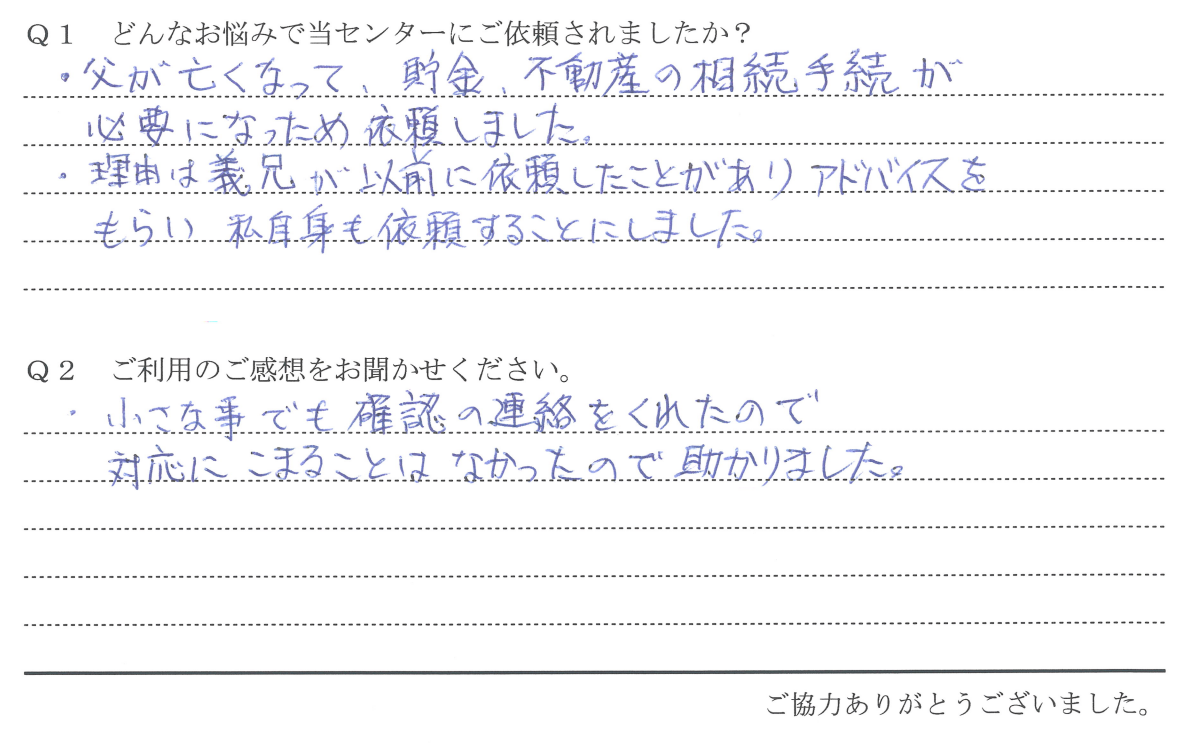 Ｑ１　どんなお悩みで当センターにご依頼されましたか？
・父が亡くなって、貯金、不動産の相続手続が
必要になっため依頼しました。
・理由は義兄が以前に依頼したことがありアドバイスを
もらい 私自身も依頼することにしました。
Ｑ２　ご利用のご感想をお聞かせください。
・小さな事でも確認の連絡をくれたので
対応にこまることはなかったので助かりました。
ご協力ありがとうございました。